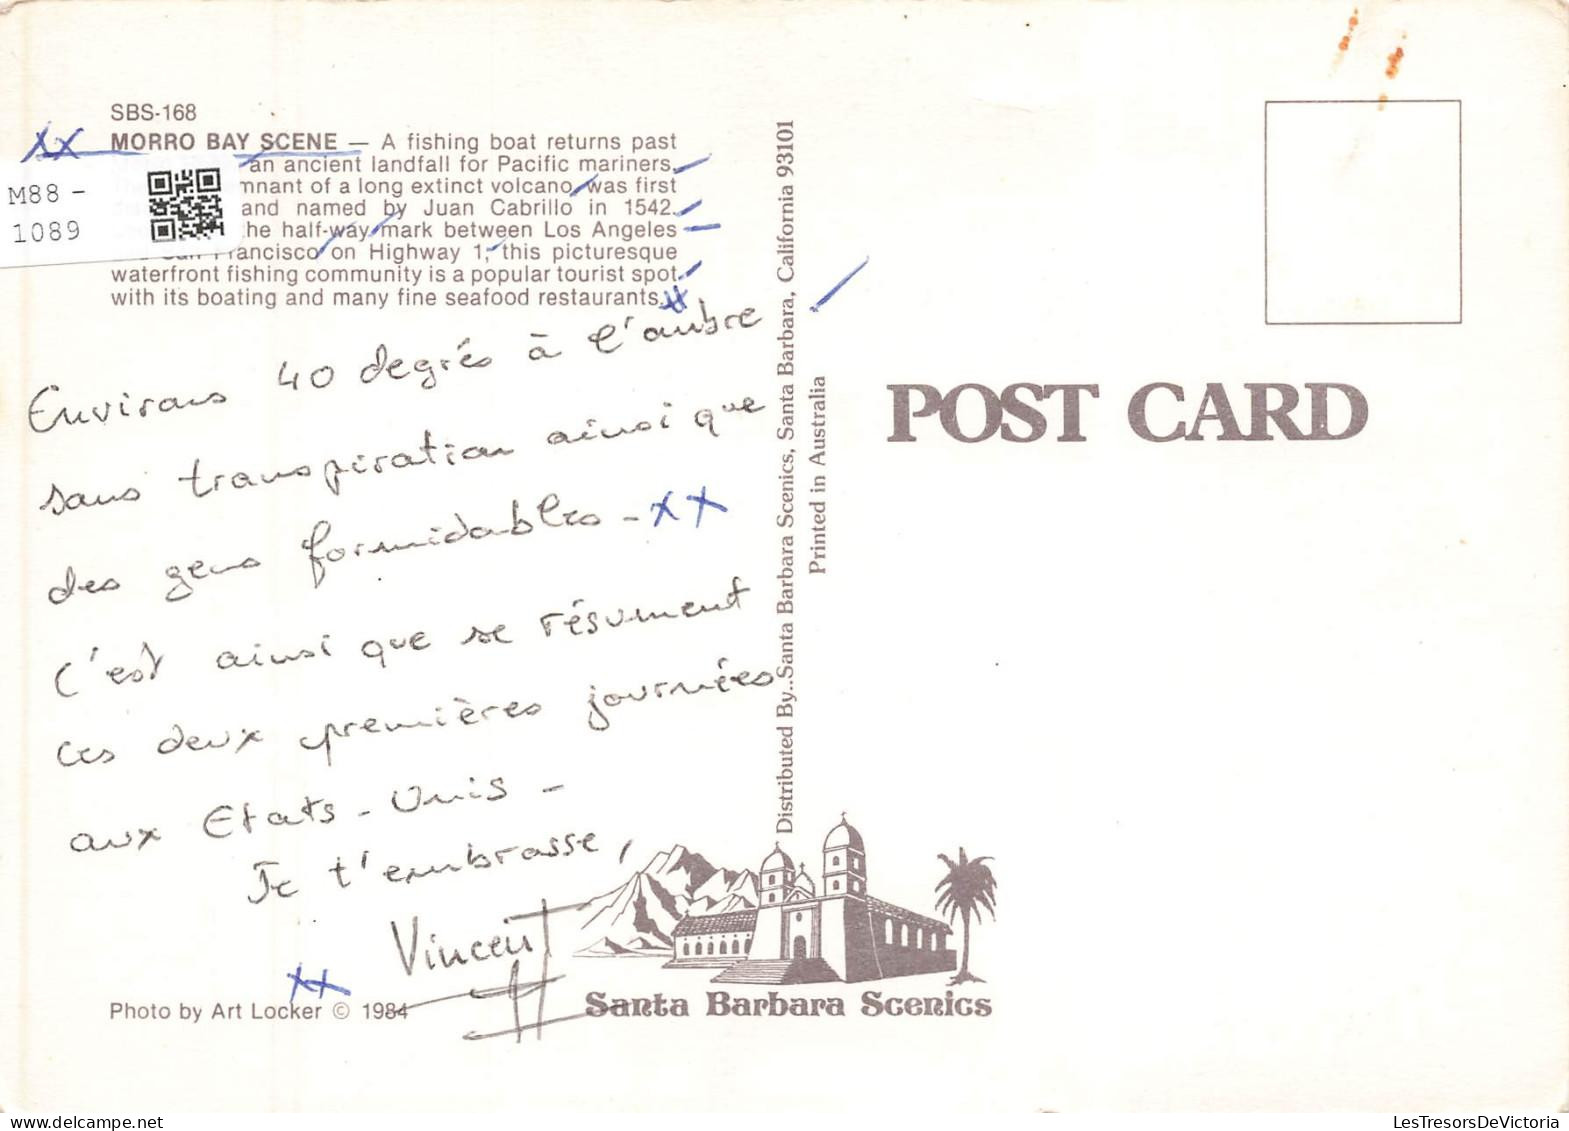 SBS-168
MORRO BAY SCENE — A fishing boat returns past
an ancient landfall for Pacific mariners.
mnant of a long extinct volcano, was first
and named by Juan Cabrillo in 1542.
he half-way mark between Los Angeles
San Francisco on Highway 1, this picturesque
waterfront fishing community is a popular tourist spot
with its boating and many fine seafood restaurants.
M88 -
1089
Environs 40 degrés à l'ombre
sans transpiration ainsi que
des gens formidables -
C'est ainsi que se résument
ces deux premières journées
aux Etats-Unis -
Je t'embrasse,
Vincent
Photo by Art Locker © 1984
Distributed By..Santa Barbara Scenics, Santa Barbara, California 93101
Printed in Australia
POST CARD
Santa Barbara Scenics
LesTresorsDeVictoria